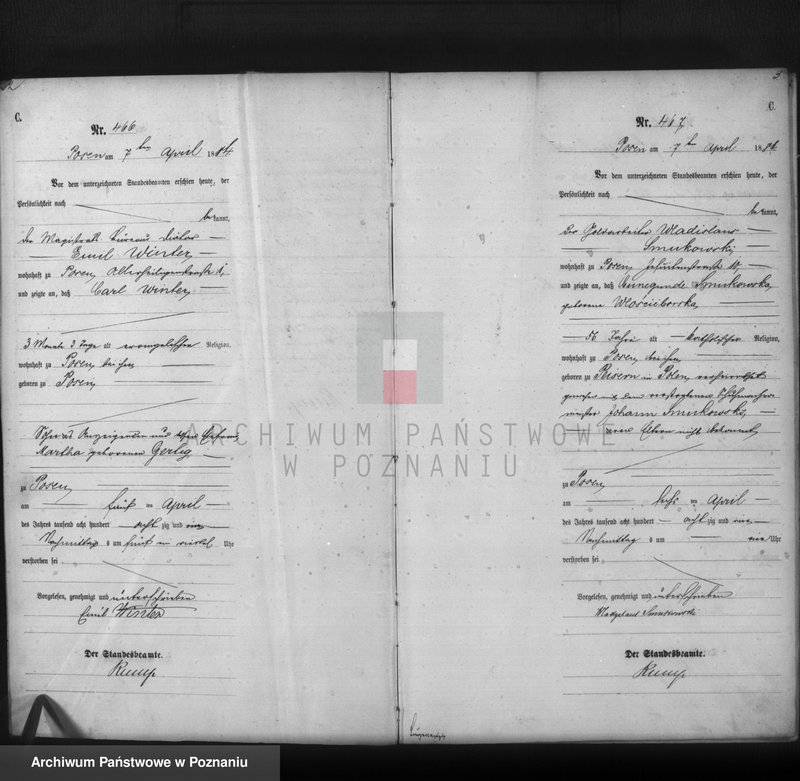 C.
Nr. 466
Posen am 7 ten April 1884.
Vor dem unterzeichneten Standesbeamten erschien heute, der
Persönlichkeit nach
be kannt,
der Magistrats Büreau
Emil Winter
wohnhaft zu Posen Allerheiligenstraße
und zeigte an, daß Carl Winter
3 Monate 3 Tage alt evangelischer Religion,
wohnhaft zu Posen bei ihm
geboren zu Posen
Sohn des Anzeigenden und dessen Ehefrau
Martha geborenen Gertig
zu Posen
am fünf ten April
des Jahres tausend acht hundert acht zig und vier
Nachmittag s um fünf ein viertel Uhr
verstorben sei
Vorgelesen, genehmigt und unterschrieben
Emil Winter
Der Standesbeamte.
Kump
3
C.
Nr. 467
Posen am 7 ten April 1884.
Vor dem unterzeichneten Standesbeamten erschien heute, der
Persönlichkeit nach
be kannt,
Der Goldarbeiter Wladislaus
Smukowski
wohnhaft zu Posen
und zeigte an, daß Cunegunde Smukowska
geborene
56 Jahre alt katholischer Religion,
wohnhaft zu Posen bei ihm
geboren zu Peisern in Polen verheirathet
gewesen mit dem verstorbenen Schuhmacher
meister Johann Smukowski,
deren Eltern nicht bekannt
zu Posen
am sechs ten April
des Jahres tausend acht hundert acht zig und vier
Nachmittag s um vier Uhr
verstorben sei
Vorgelesen, genehmigt und unterschrieben
Smukowski
Der Standesbeamte.
Kump
ARCHIWUM PAŃSTWOWE
W POZNANIU
Archiwum Państwowe w Poznaniu